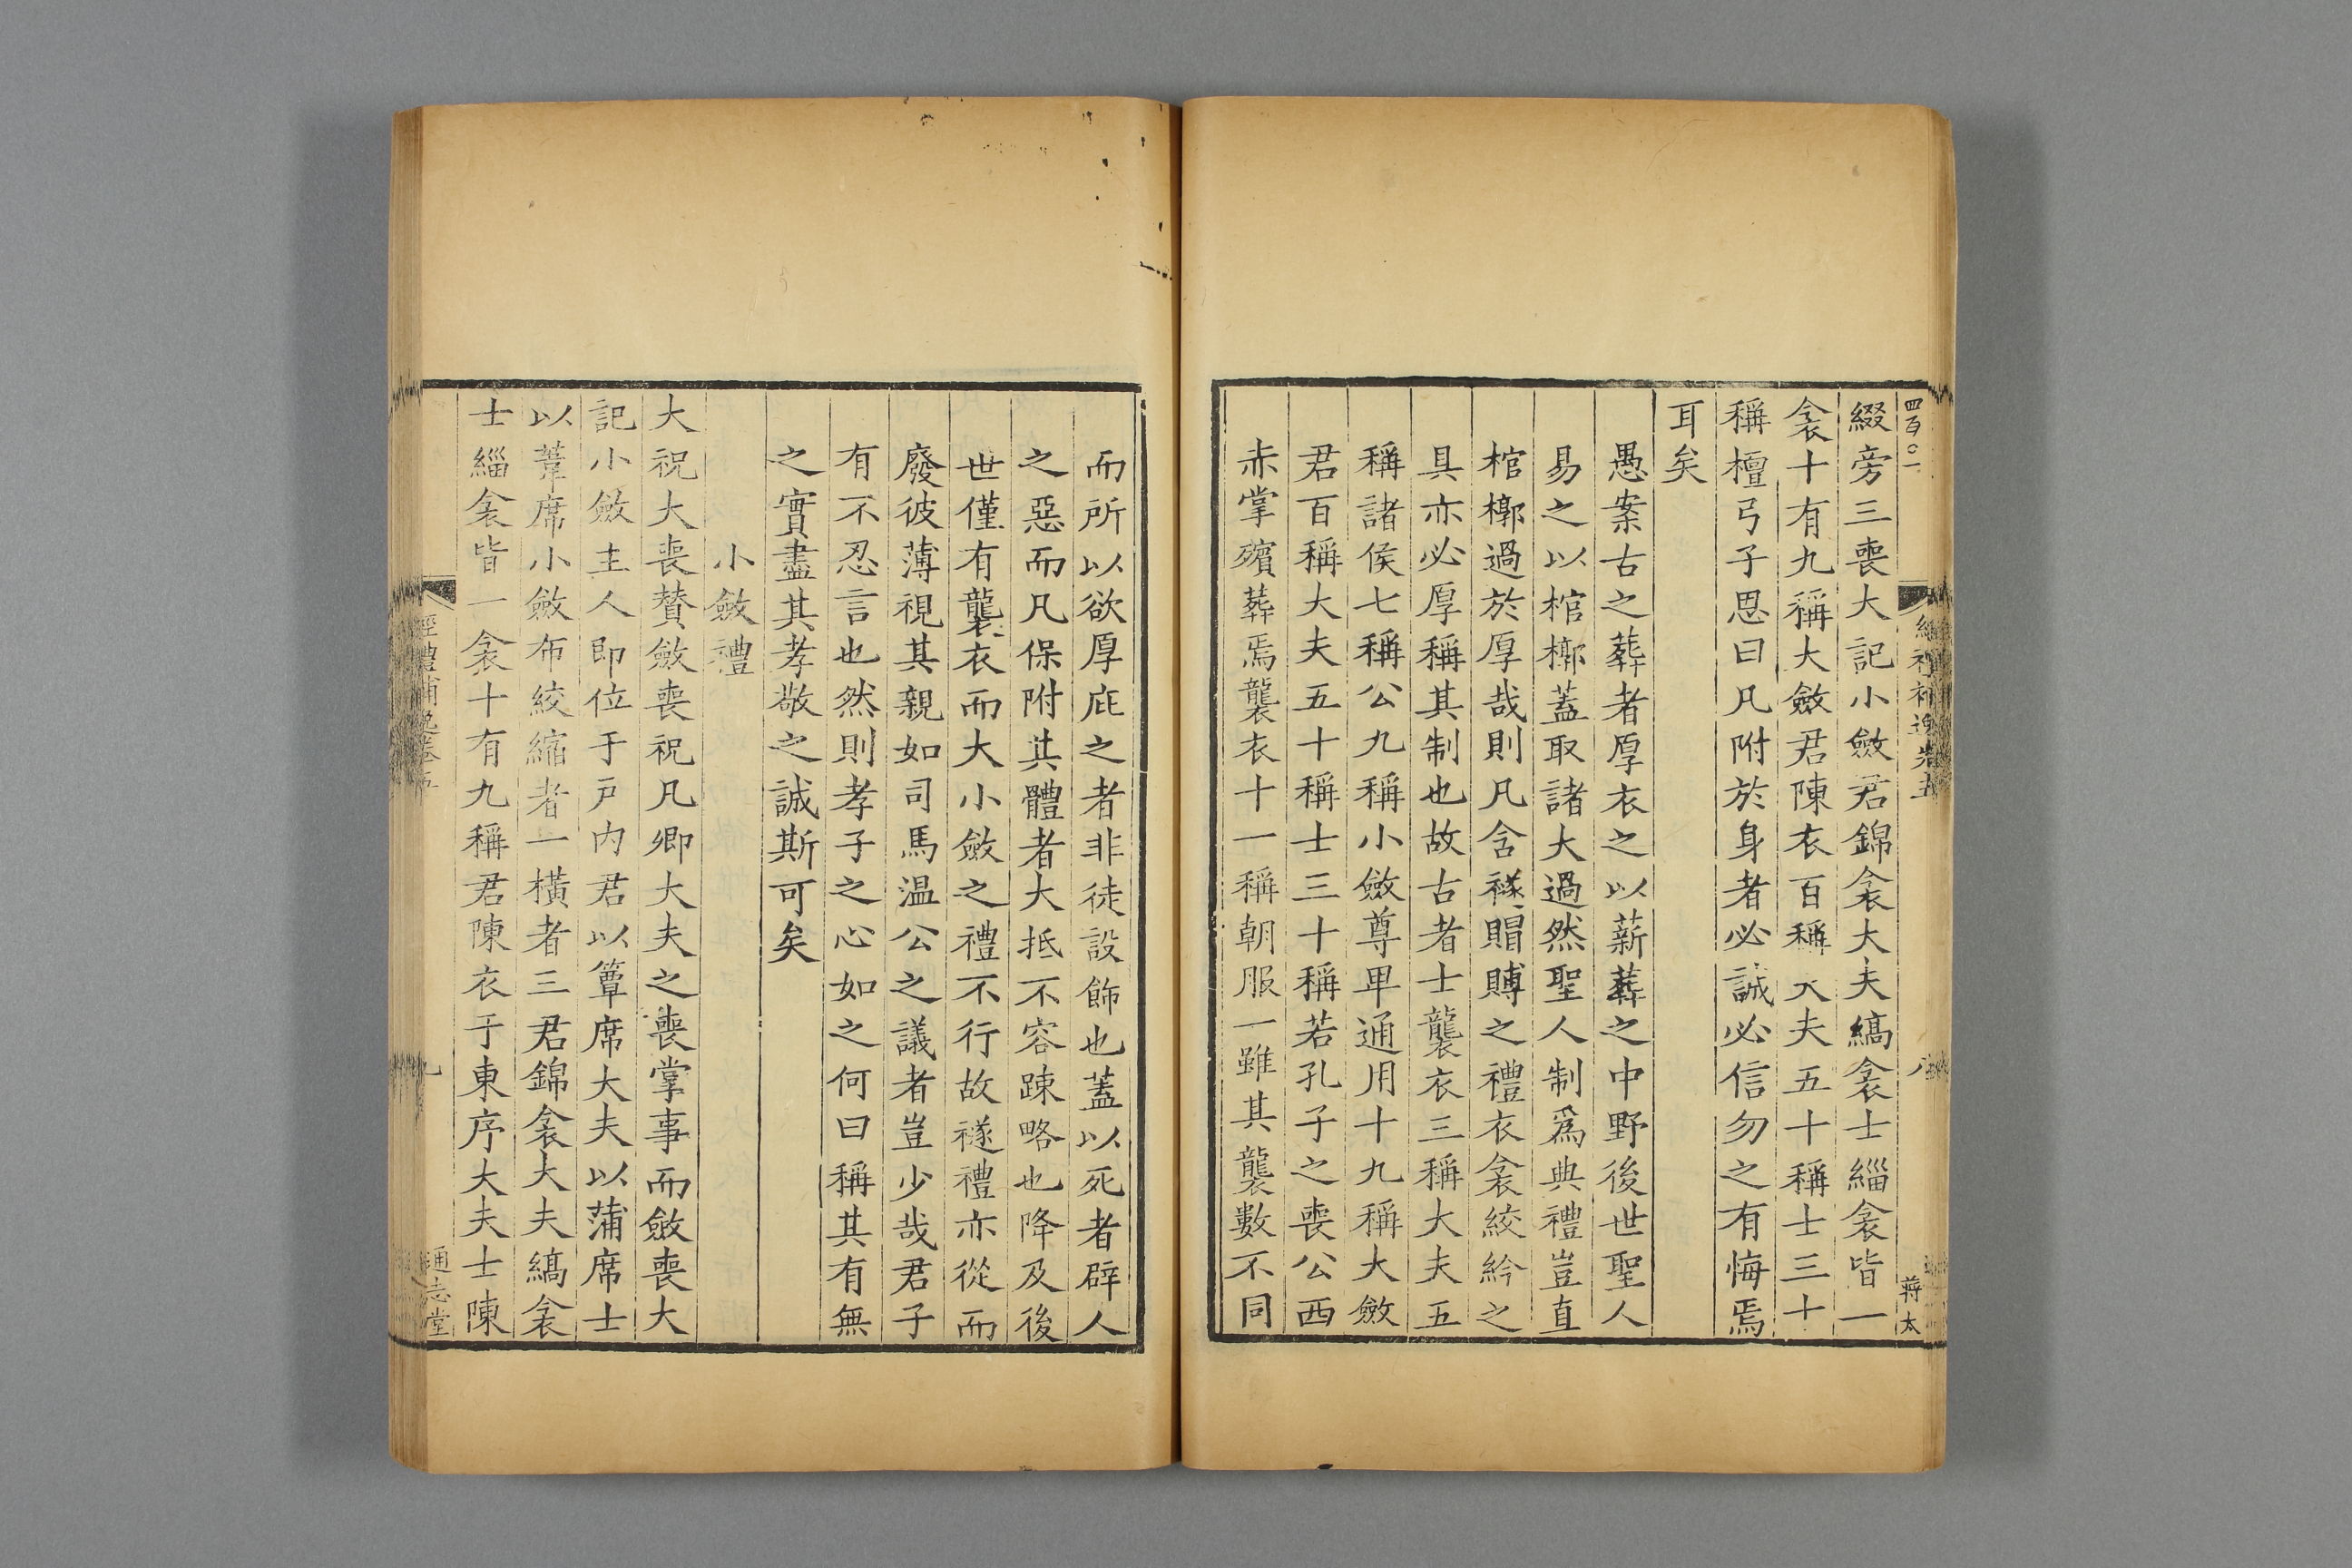 四百〇一
經禮補逸卷五
八
蔣太
綴旁三喪大記小斂君錦衾大夫縞衾士緇衾皆一
衾十有九稱大斂君陳衣百稱大夫五十稱士三十
稱檀弓子思曰凡附於身者必誠必信勿之有悔焉
耳矣
愚案古之葬者厚衣之以薪葬之中野後世聖人
易之以棺槨蓋取諸大過然聖人制爲典禮豈直
棺槨過於厚哉則凡含襚賵賻之禮衣衾絞紟之
具亦必厚稱其制也故古者士襲衣三稱大夫五
稱諸侯七稱公九稱小斂尊卑通用十九稱大斂
君百稱大夫五十稱士三十稱若孔子之喪公西
赤掌殯葬焉襲衣十一稱朝服一雖其襲數不同
而所以欲厚庇之者非徒設飾也蓋以死者辟人
之惡而凡保附其體者大抵不容踈略也降及後
世僅有襲衣而大小斂之禮不行故襚禮亦從而
廢彼薄視其親如司馬温公之議者豈少哉君子
有不忍言也然則孝子之心如之何曰稱其有無
之實盡其孝敬之誠斯可矣
小斂禮
大祝大喪贊斂喪祝凡卿大夫之喪掌事而斂喪大
記小斂主人即位于戸内君以簟席大夫以蒲席士
以葦席小斂布絞縮者一橫者三君錦衾大夫縞衾
士緇衾皆一衾十有九稱君陳衣于東序大夫士陳
經禮補逸卷五
九
通志堂